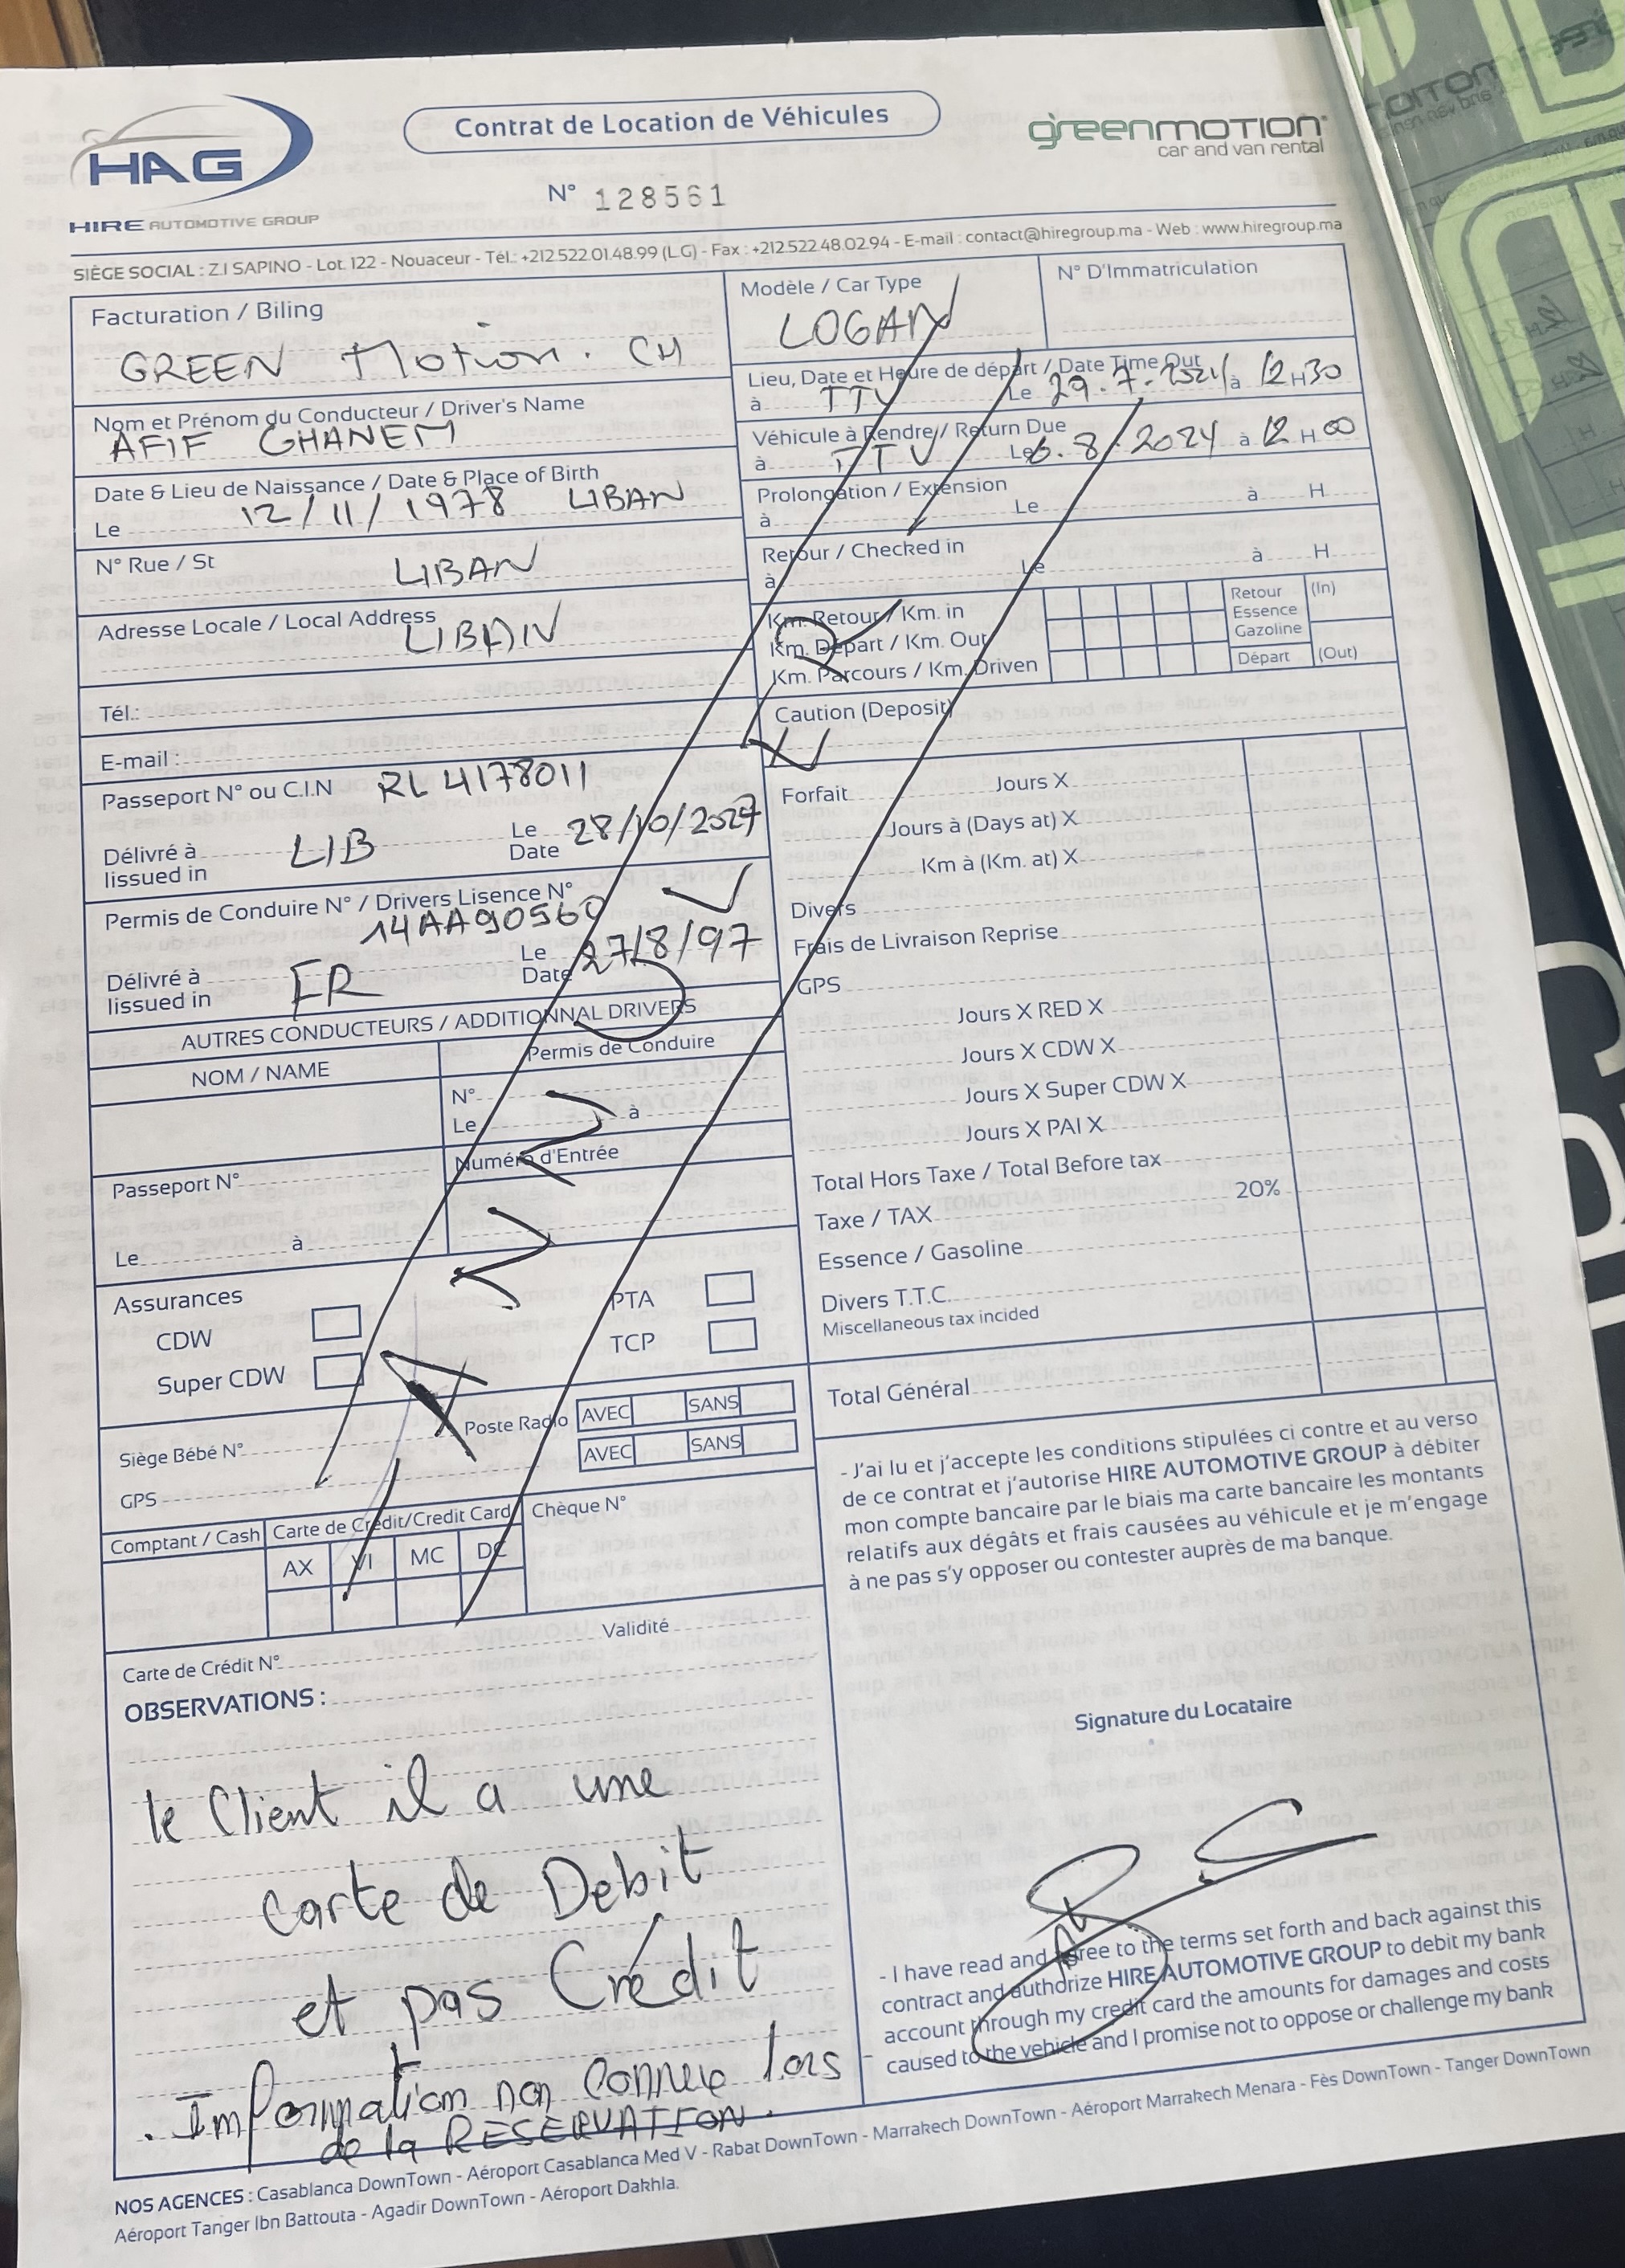 HAG
HIRE AUTOMOTIVE GROUP
Contrat de Location de Véhicules
N° 128561
greenmotion
car and van rental
SIÈGE SOCIAL : Z.I SAPINO - Lot. 122 - Nouaceur - Tél.: +212522.01.48.99 (L.G) - Fax : +212522.48.02.94 - E-mail : contact@hiregroup.ma - Web : www.hiregroup.ma
Facturation / Biling
GREEN Motion. CH
Nom et Prénom du Conducteur / Driver's Name
AFIF GHANEM
Date & Lieu de Naissance / Date & Place of Birth
Le 12/11/1978 LIBAN
N° Rue / St
LIBAN
Adresse Locale / Local Address
LIBAN
Tél.:
E-mail :
Passeport N° ou C.I.N RL 4178011
Délivré à LIB Le 28/10/2027
Iissued in Date
Permis de Conduire N° / Drivers Lisence N°
14AA90560
Délivré à FR Le 27/8/97
Iissued in Date
AUTRES CONDUCTEURS / ADDITIONNAL DRIVERS
NOM / NAME
Permis de Conduire
N°
Le à
Passeport N°
Numéro d'Entrée
Le à
Assurances
CDW
PTA
Super CDW
TCP
Siège Bébé N°
Poste Radio AVEC SANS
GPS
AVEC SANS
Comptant / Cash
Carte de Crédit/Credit Card
Chèque N°
AX VI MC DC
Validité
Carte de Crédit N°
OBSERVATIONS :
le Client il a une
carte de Debit
et pas Crédit
. Information non connue lors
de la RESERVATION.
Modèle / Car Type
LOGAN
N° D'Immatriculation
Lieu, Date et Heure de départ / Date Time Out
à TTV Le 29.7.2024 à 12 H 30
Véhicule à Rendre / Return Due
à TTV Le 6.8.2024 à 12 H 00
Prolongation / Extension
à Le à H
Retour / Checked in
à Le à H
Km. Retour / Km. in
Km. Départ / Km. Out
Km. Parcours / Km. Driven
Retour (In)
Essence
Gazoline
Départ (Out)
Caution (Deposit)
Forfait Jours X
Jours à (Days at) X
Km à (Km. at) X
Divers
Frais de Livraison Reprise
GPS
Jours X RED X
Jours X CDW X
Jours X Super CDW X
Jours X PAI X
Total Hors Taxe / Total Before tax
Taxe / TAX 20%
Essence / Gasoline
Divers T.T.C.
Miscellaneous tax incided
Total Général
- J'ai lu et j'accepte les conditions stipulées ci contre et au verso
de ce contrat et j'autorise HIRE AUTOMOTIVE GROUP à débiter
mon compte bancaire par le biais ma carte bancaire les montants
relatifs aux dégâts et frais causées au véhicule et je m'engage
à ne pas s'y opposer ou contester auprès de ma banque.
Signature du Locataire
- I have read and agree to the terms set forth and back against this
contract and authorize HIRE AUTOMOTIVE GROUP to debit my bank
account through my credit card the amounts for damages and costs
caused to the vehicle and I promise not to oppose or challenge my bank
NOS AGENCES : Casablanca DownTown - Aéroport Casablanca Med V - Rabat DownTown - Marrakech DownTown - Aéroport Marrakech Menara - Fès DownTown - Tanger DownTown
Aéroport Tanger Ibn Battouta - Agadir DownTown - Aéroport Dakhla.